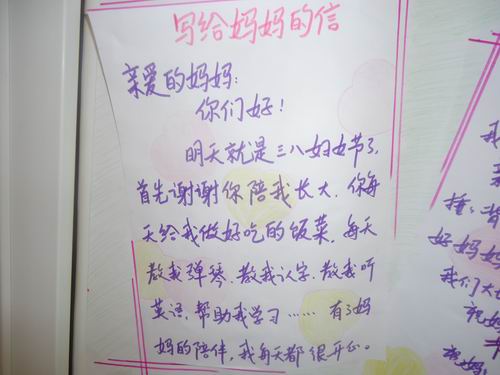 写给妈妈的信
亲爱的妈妈：
你们好！
明天就是三八妇女节了，
首先谢谢你陪我长大，你每
天给我做好吃的饭菜，每天
教我弹琴、教我认字、教我听
英语，帮助我学习……有了妈
妈的陪伴，我每天都很开心。
我
捶，
好妈妈
我们大
祝
祝妈